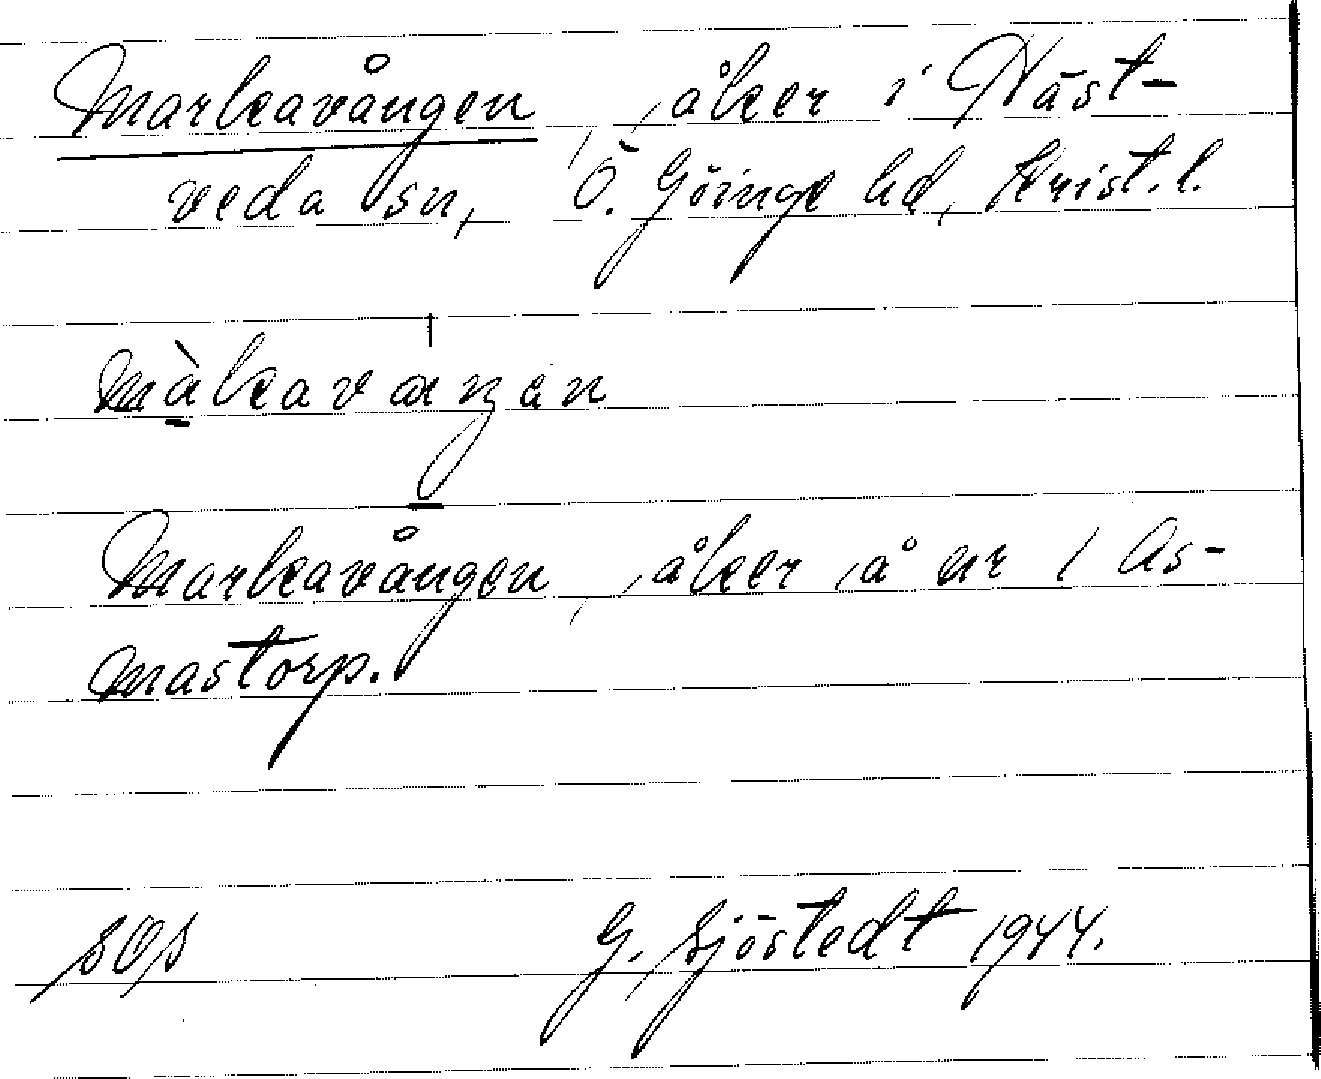 Markavången, åker i Häst-
veda sn, Ö. Göinge hd, Krist. l.
màkavaŋan
Markavången, åker å nr 1 As-
mastorp.
SOS G. Sjöstedt 1944.